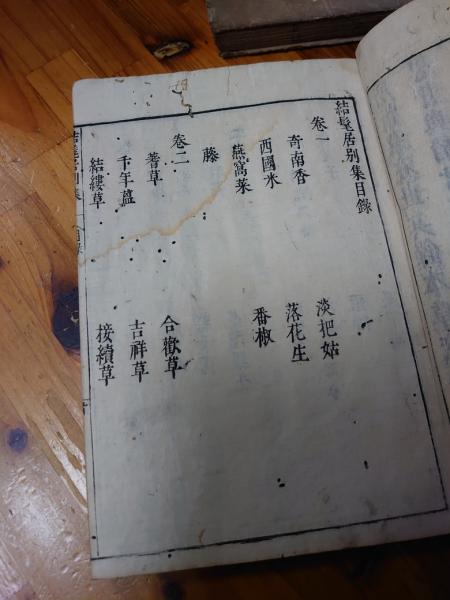 結髦居別集目錄
卷一
奇南香 淡把姑
西國米 落花生
燕窩菜 番椒
藤
卷二
蓍草 合歡草
千年蒀 吉祥草
結縷草 接續草